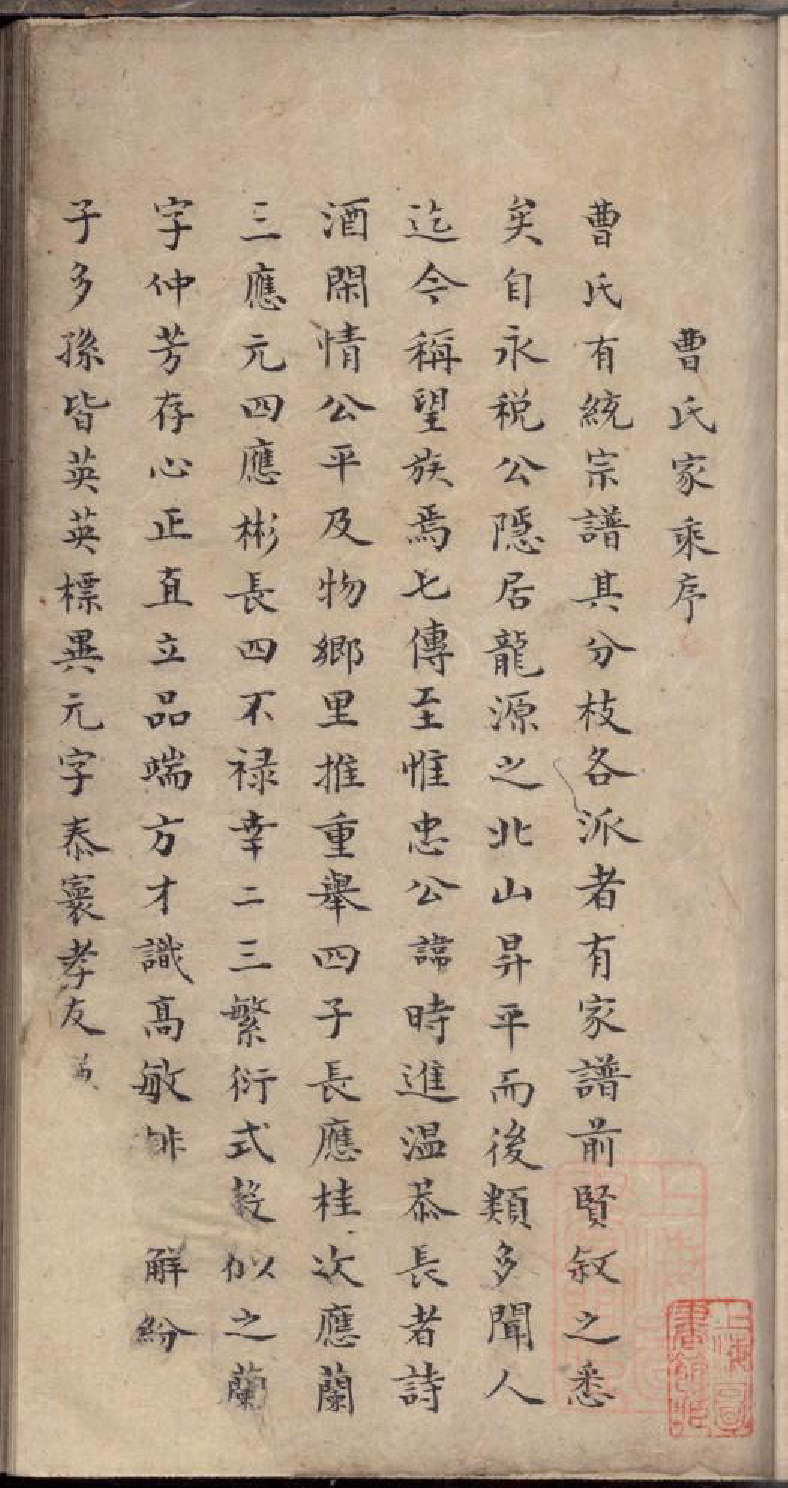 曹氏家乘序
曹氏有統宗譜其分枝各派者有家譜前賢叙之悉
矣自永税公隱居龍源之北山昇平而後類多聞人
迄今稱望族焉七傳至惟忠公諱時進温恭長者詩
酒閑情公平及物鄉里推重舉四子長應桂次應蘭
三應元四應彬長四不禄幸二三繁衍式穀似之蘭
字仲芳存心正直立品端方才識高敏排解紛
子多孫皆英英標異元字泰寰孝友
上海圖書館藏